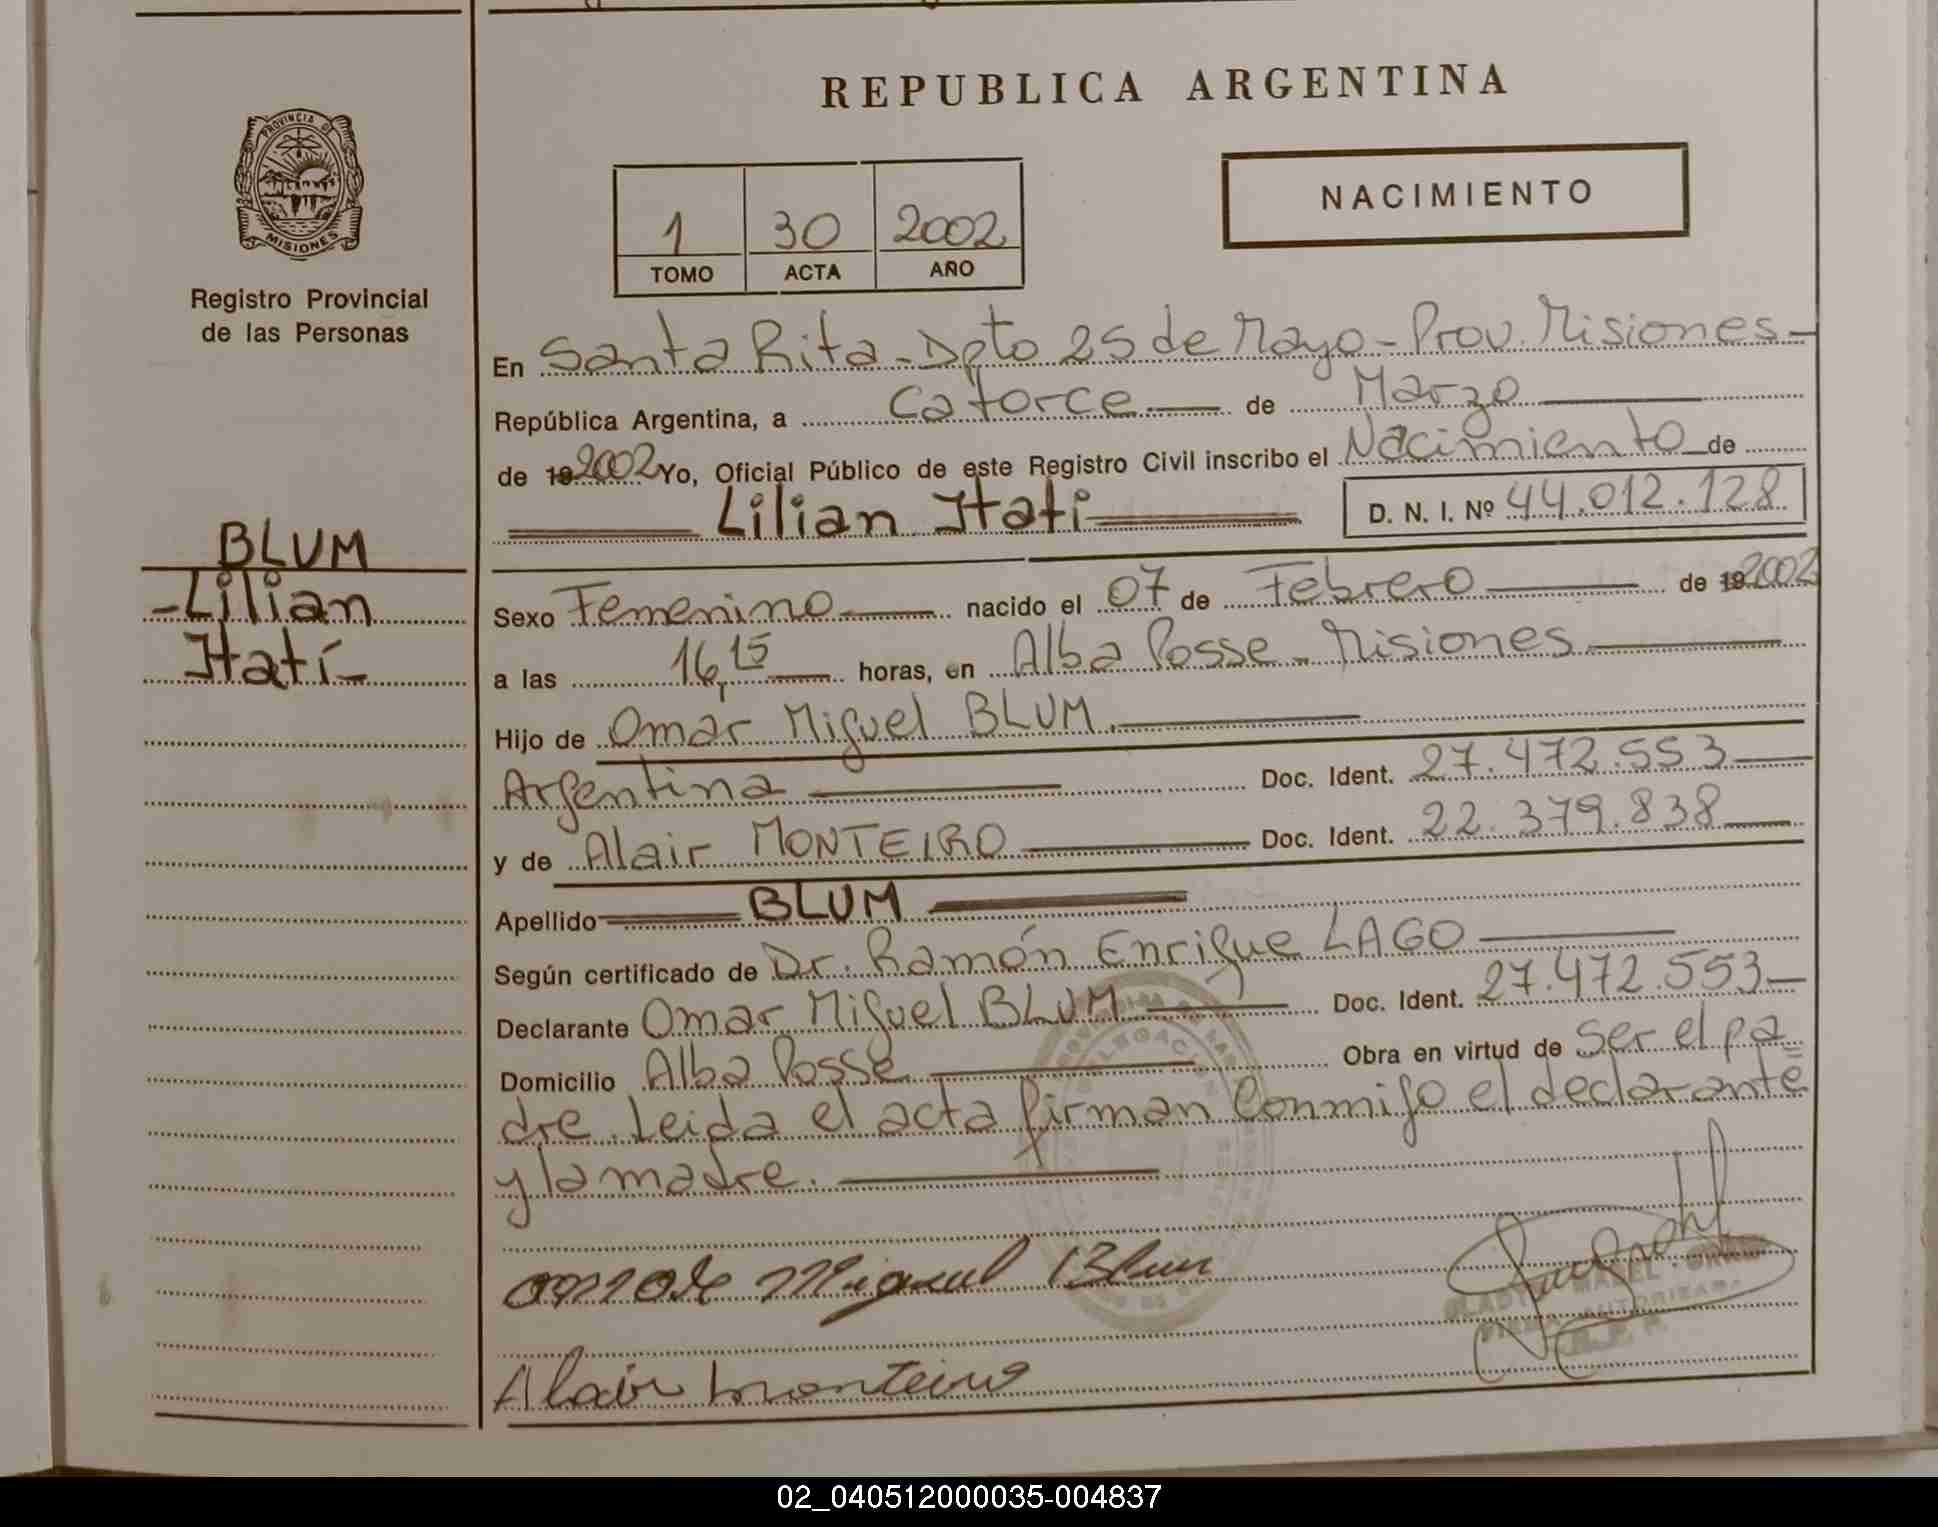 REPUBLICA ARGENTINA
PROVINCIA DE
MISIONES
Registro Provincial
de las Personas
1 30 2002
TOMO ACTA AÑO
NACIMIENTO
En Santa Rita - Dpto 25 de Mayo - Prov. Misiones -
República Argentina, a Catorce de Marzo
de 19 2002 Yo, Oficial Público de este Registro Civil inscribo el Nacimiento de
Lilian Itati D. N. I. Nº 44.012.128
BLUM
- Lilian
Itatí -
Sexo Femenino nacido el 07 de Febrero de 19 2002
a las 16,15 horas, en Alba Posse - Misiones
Hijo de Omar Miguel BLUM.
Argentina Doc. Ident. 27.472.553
y de Alair MONTEIRO Doc. Ident. 22.379.838
Apellido BLUM
Según certificado de Dr. Ramón Enrique LAGO
Declarante Omar Miguel BLUM Doc. Ident. 27.472.553
Domicilio Alba Posse Obra en virtud de ser el pa=
dre. Leida el acta firman conmigo el declarante
y la madre.
DELEGACION
Omar Miguel Blum
MABEL
AUTORIZADA
Alair Monteiro
02_040512000035-004837